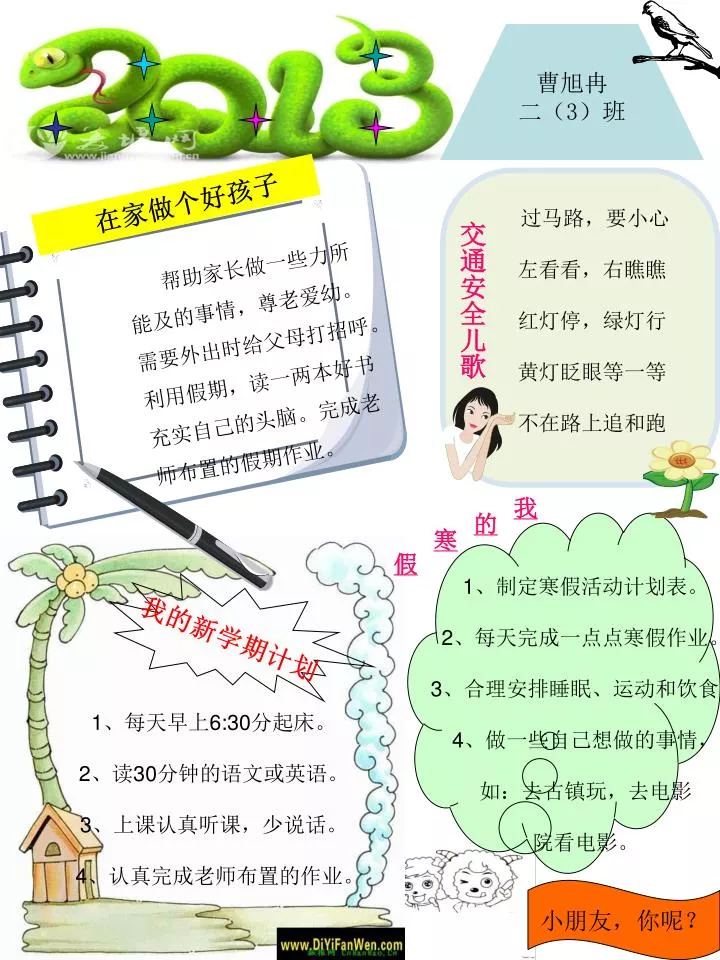 2013
曹旭冉
二（3）班
在家做个好孩子
帮助家长做一些力所
能及的事情，尊老爱幼。
需要外出时给父母打招呼。
利用假期，读一两本好书
充实自己的头脑。完成老
师布置的假期作业。
交通安全儿歌
过马路，要小心
左看看，右瞧瞧
红灯停，绿灯行
黄灯眨眼等一等
不在路上追和跑
我的寒假
1、制定寒假活动计划表。
2、每天完成一点点寒假作业。
3、合理安排睡眠、运动和饮食
4、做一些自己想做的事情，
如：去古镇玩，去电影
院看电影。
我的新学期计划
1、每天早上6:30分起床。
2、读30分钟的语文或英语。
3、上课认真听课，少说话。
4、认真完成老师布置的作业。
小朋友，你呢？
www.DiYiFanWen.com